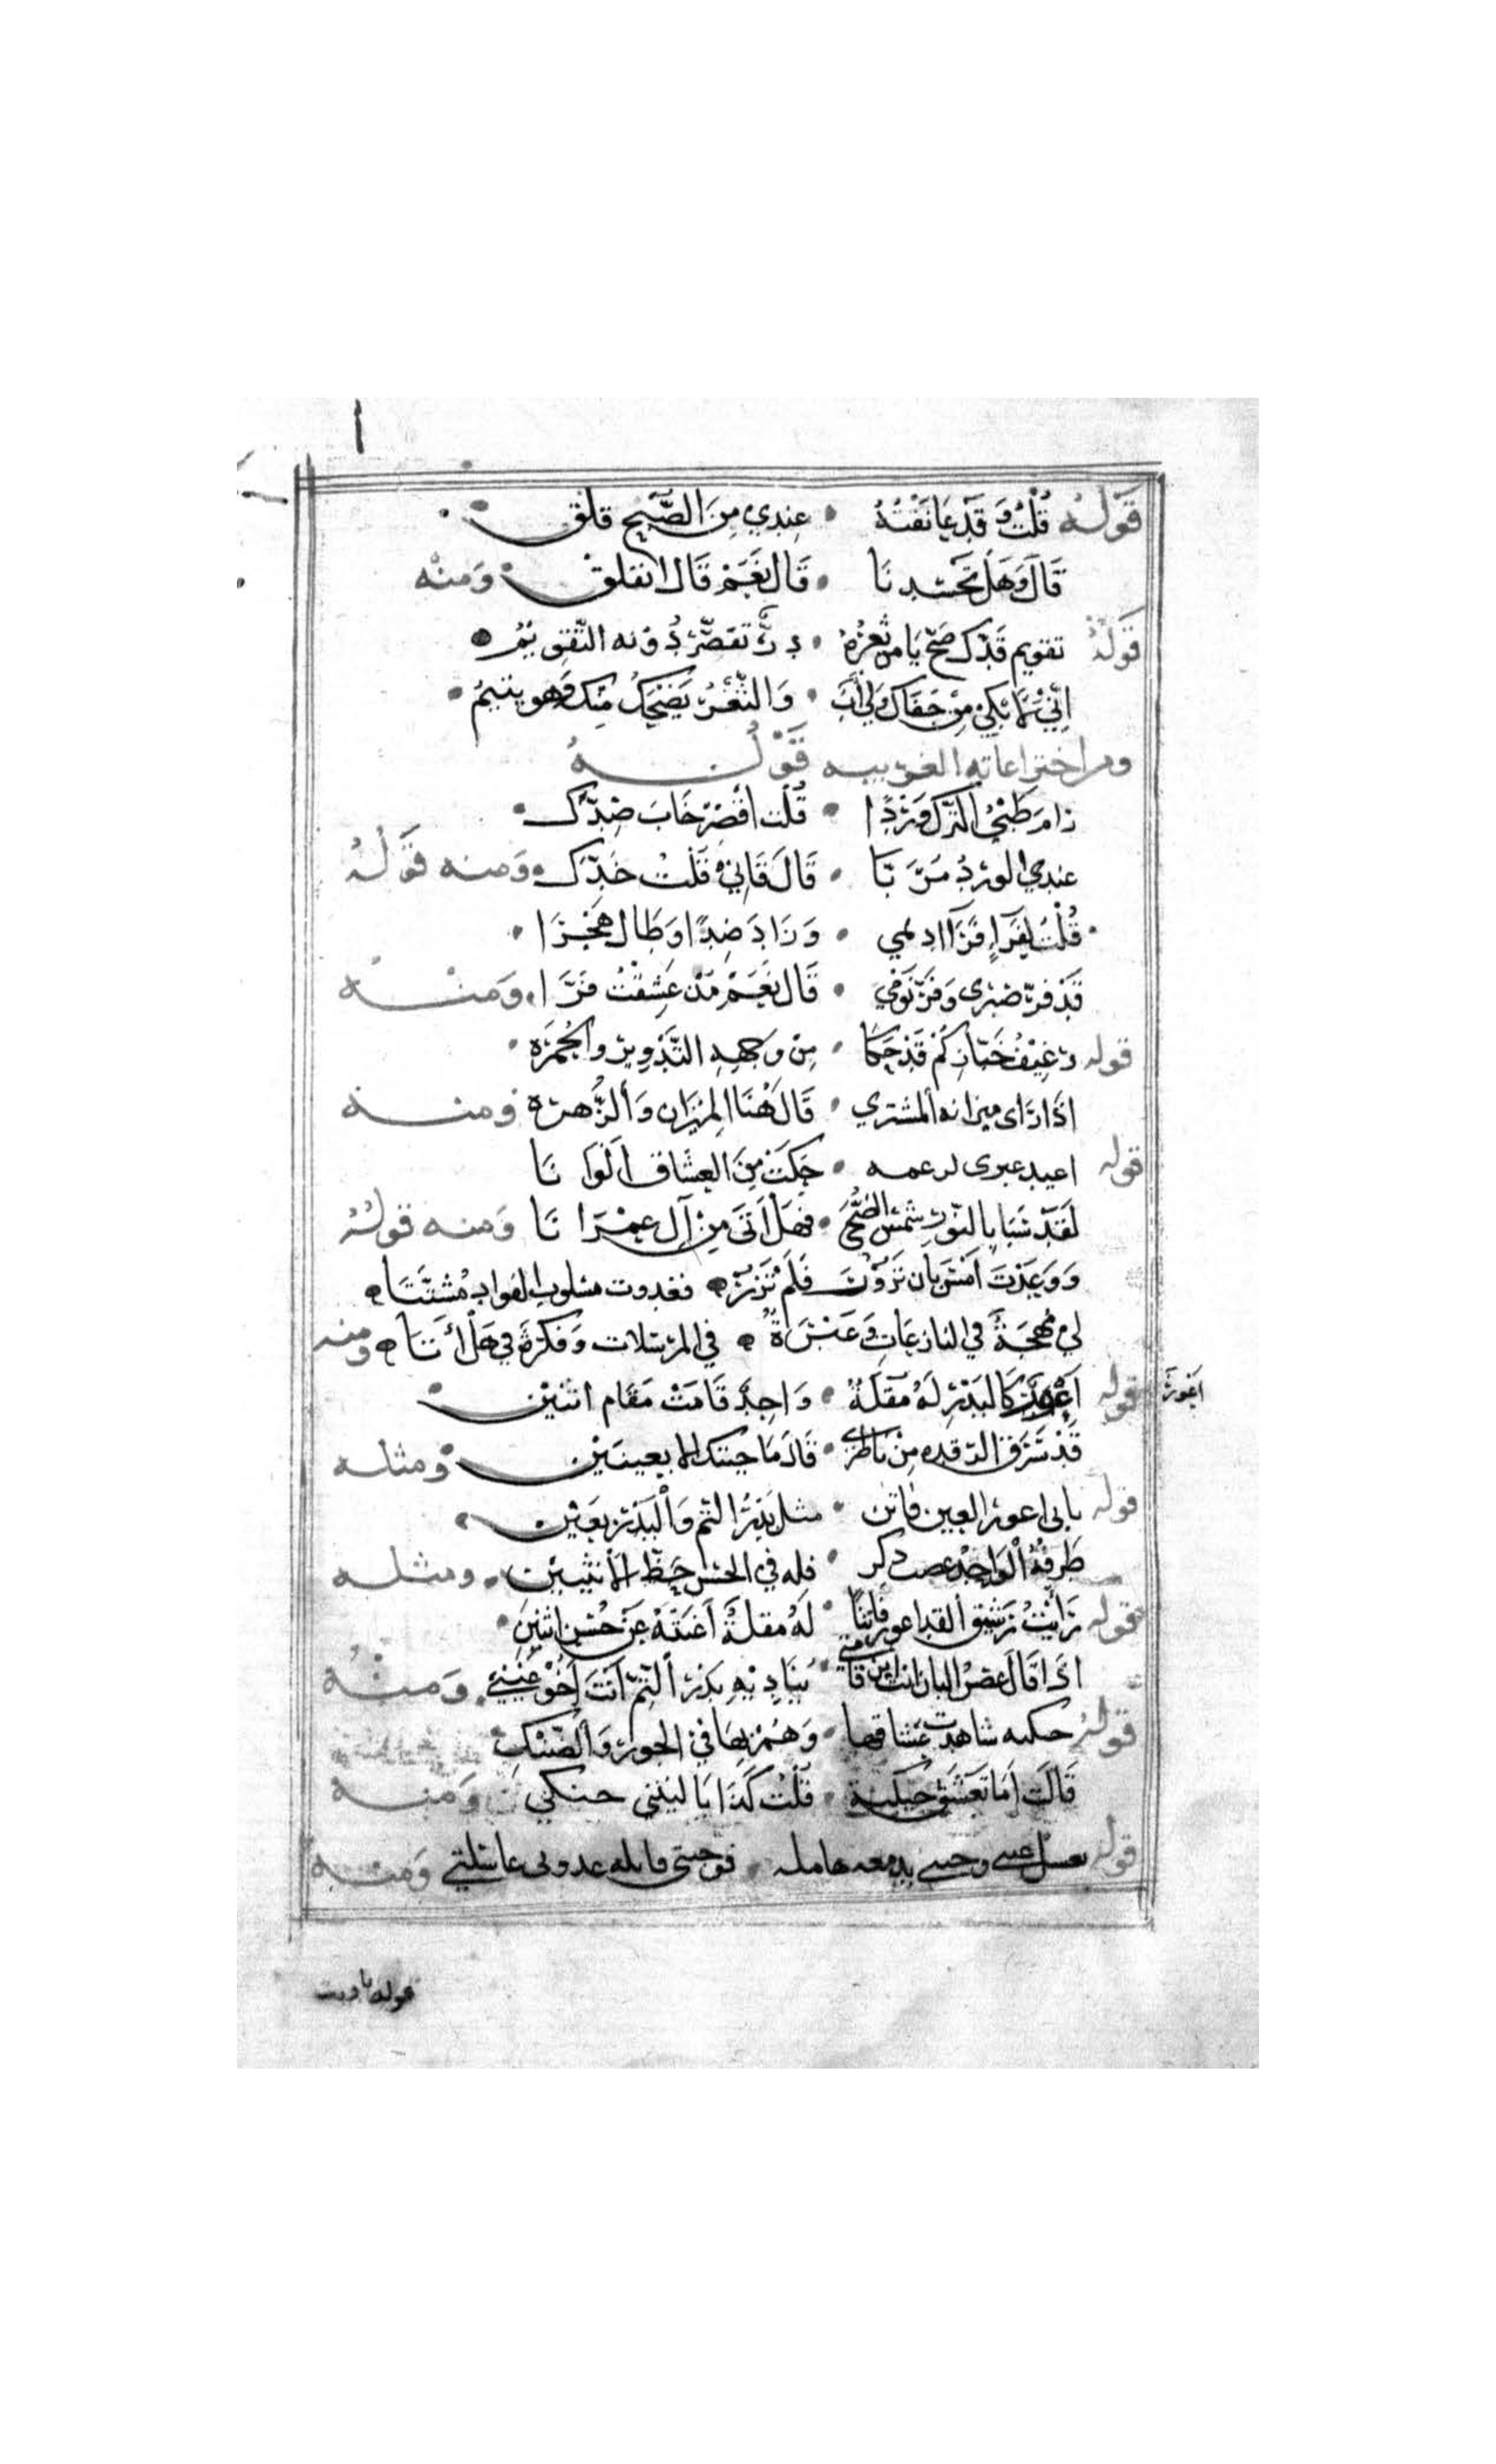 قَوْلُه قُلْتُ وَ قَدْ عَانَقْتُهُ • عِنْدِي مِنَ الصُّبْحِ قلق
قَالَ وَهَل يَحْسُدنَا • قَال نَعَمْ قَال انفلق وَمنْه
قَوْلُهُ تقويم قَدِّكَ صَحَّ يَا مَن ثغرُهُ • دُرٌّ تقصِّرُ دُونه التَّقوِيمُ
اِنِّي لمَا بَكِي مِنْ جَفَاكَ وَلِي أب • وَالثَّغْرُ يَضْحَكُ مِنْكَ وَهو يتيمُ
ومن اختراعاته الغريبه قَوْلُهُ
زامَ ظَبْيُ التُّركِ وَرْدًا • قُلت اقْصِرْ خَابَ ضِدّك
عندي الورْدُ مُرَبَّا • قَال قَانِي قُلْتُ خَدّك وَمنه قَوْلُهُ
قُلْتُ لِفَرَّاءٍ فَرَا اديمي • وَزَادَ صَدًّا وَطَال هَجْرَا
قَدْ فرَّ صَبْرى وَفَرَّ نَوْمي • قَال نَعَمْ مَنْ عَشِقْتُ فَرَّا وَمنْه
قوله رغِيْفُ خَبَّازِكُمْ قَدْ حَكَا • مِنْ وجههِ التَّدْوِيرَ والحُمْرَه
اذَا رَاى ميزانه المشتري • قَالَ هُنَا المِيْزَان وَالزُّهره ومنه
قوله اعيد عبرى • حَكَتْ مِنَ العِشَاق الْوَانَا
لَقَدْ سَبَا بالنّوْرِ شَمْسَ الضُّحَى • فهَل أتَى مِنْ آلِ عِمْرَانَا وَمنه قولُهُ
وَوَعَدْتَ اَمْسِ بِان تَزوْرَ فَلَمْ تَزُرْ • فغدوت مسلوب الفواد مُشَتَّتَا
لِي مُهجَةٌ في النازعَاتِ وَعَبْرَةٌ • في المرْسَلات وَفكرَةٌ في هَلْ أتَا ومنه
قوله كَالبَدْرِ لَهُ مُقلَةٌ • وَاحِدَةٌ قَامَتْ مَقَام اثنَيْن
اَعْوَرُ
قَدْ سَرَقَ الرّقده مِنْ نَاظري • قَالَ مَا جيتك الا بِعينَيْن ومثله
قوله بابي اعورُ العين فاتن • مثل بَدْرُ التّم وَالْبَدْرُ بعَيْن
طَرفُهُ الْوَاحِدُ عضب ذكر • فله في الحسْن حَظّ الأُنثيين ومثله
قوله رَأيْتُ رَشيقَ القد اعور فاتنًا • لَهُ مُقلَةٌ اغنَتْهُ عَنْ حُسْن اثنين
اذَا قَال غصْنُ البان انت ابن قامتي • يُنَادِيْهِ بَدْرُ التِّمّ اَنتَ اَخُوْ عَيْني وَمنْهُ
قولهُ حكيه شاهدت عشاقها • وَهُمْ بهَا في الجور وَالضَّنْكِ
قَالَت اَمَا تَعشَقُ حِيكيةً • قُلْتُ كَذَا يَا ليْتني حنكي وَمنه
قوله • وَمنه
قوله يا ويت